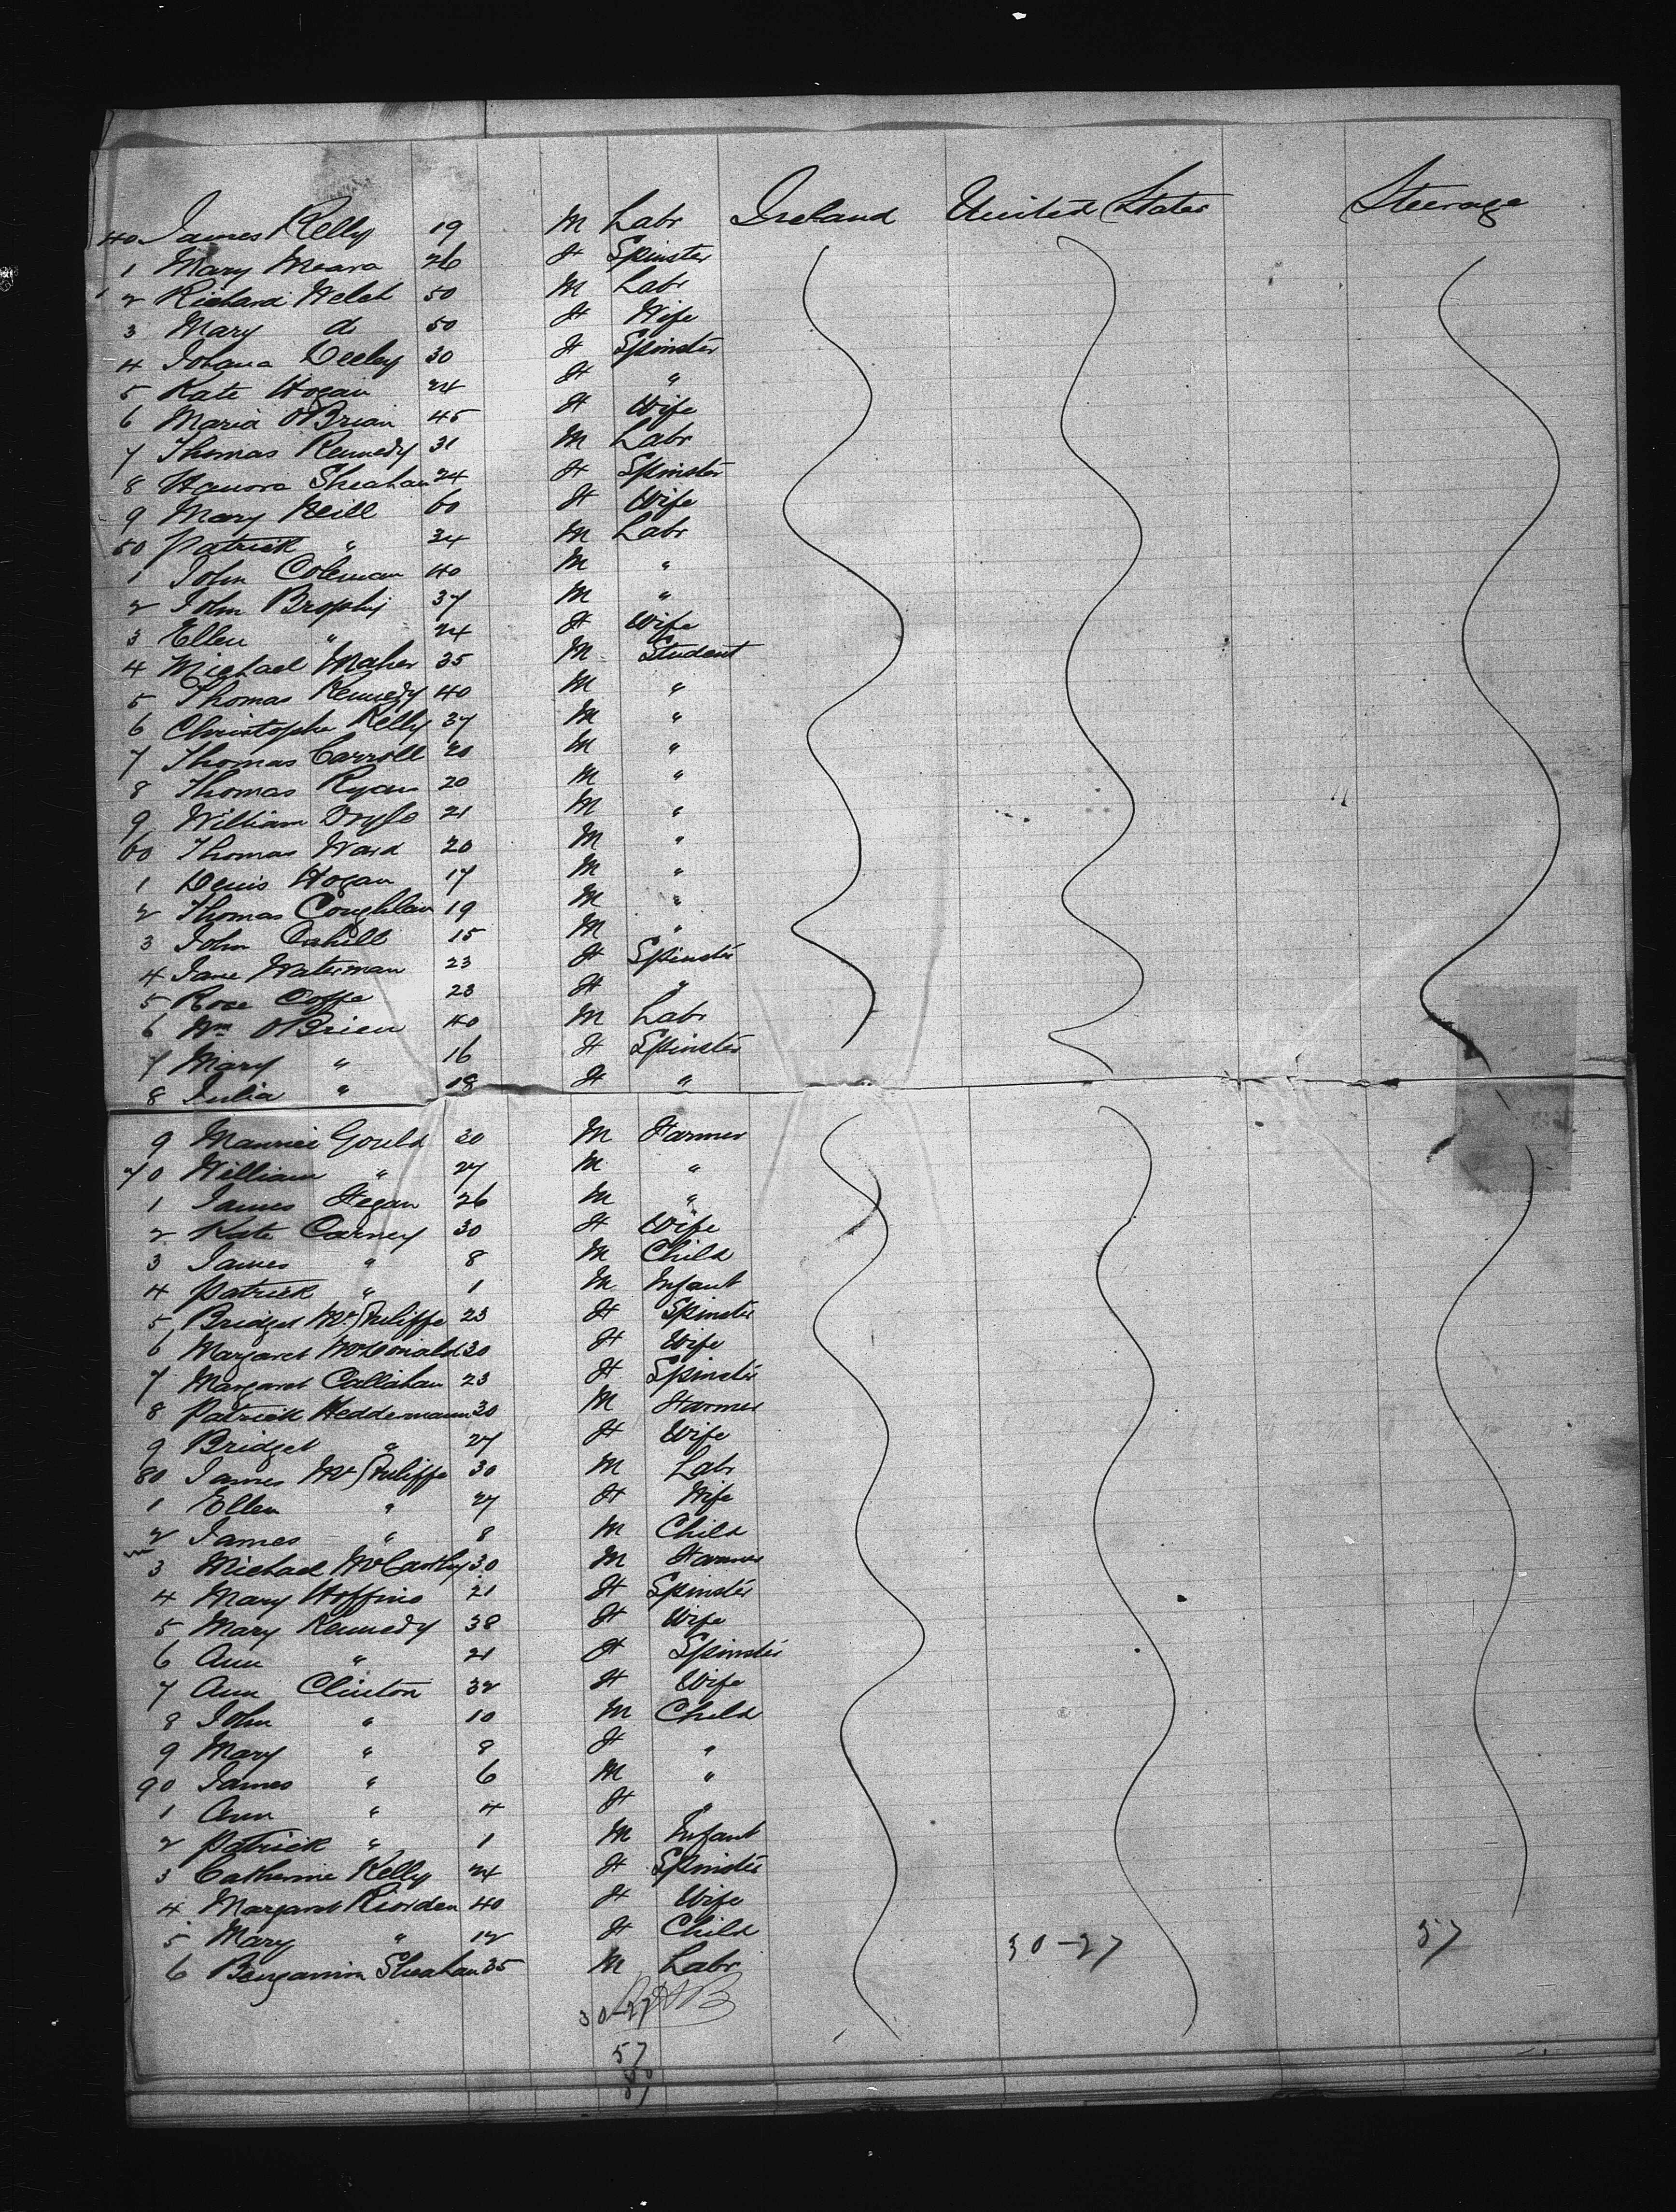 40 James Kelly 19 M Labr Ireland United States Steerage
1 Mary Meara 26 F Spinster
2 Richard Welch 50 M Labr
3 Mary do 50 F Wife
4 Johana Deeley 30 F Spinster
5 Kate Hogan 24 F "
6 Maria OBrian 45 F Wife
7 Thomas Kennedy 31 M Labr
8 Hanora Sheahan 24 F Spinster
9 Mary Neill 60 F Wife
50 Patrick " 34 M Labr
1 John Coleman 40 M "
2 John Brophy 37 M "
3 Ellen " 24 F Wife
4 Michael Maher 35 M Student
5 Thomas Kennedy 40 M "
6 Christophe Kelly 37 M "
7 Thomas Carroll 20 M "
8 Thomas Ryan 20 M "
9 William 21 M "
60 Thomas Ward 20 M "
1 Denis Hogan 17 M "
2 Thomas Coughlan 19 M "
3 John Cahill 15 M "
4 Jane Waterman 23 F Spinster
5 Rose Coffe 23 F "
6 Wm OBrien 40 M Labr
7 Mary " 16 F Spinster
8 Julia " 18 F "
9 Maurice Gould 30 M Farmer
70 William " 27 M "
1 James Fegan 26 M "
2 Kate Carney 30 F Wife
3 James " 8 M Child
4 Patrick " 1 M Infant
5 Bridget McAuliffe 23 F Spinster
6 Margaret McDonald 30 F Wife
7 Margaret Callahan 23 F Spinster
8 Patrick Heddermann 30 M Farmer
9 Bridget " 27 F Wife
80 James McAuliffe 30 M Labr
1 Ellen " 27 F Wife
2 James " 8 M Child
3 Michael McCarthy 30 M Farmer
4 Mary Hoffins 21 F Spinster
5 Mary Kennedy 38 F Wife
6 Ann " 21 F Spinster
7 Ann Clinton 32 F Wife
8 John " 10 M Child
9 Mary " 8 F "
90 James " 6 M "
1 Ann " 4 F "
2 Patrick " 1 M Infant
3 Catherine Kelly 24 F Spinster
4 Margaret Riorden 40 F Wife
5 Mary " 12 F Child 30-27 57
6 Bengamin Sheahan 35 M Labr
30-27
57